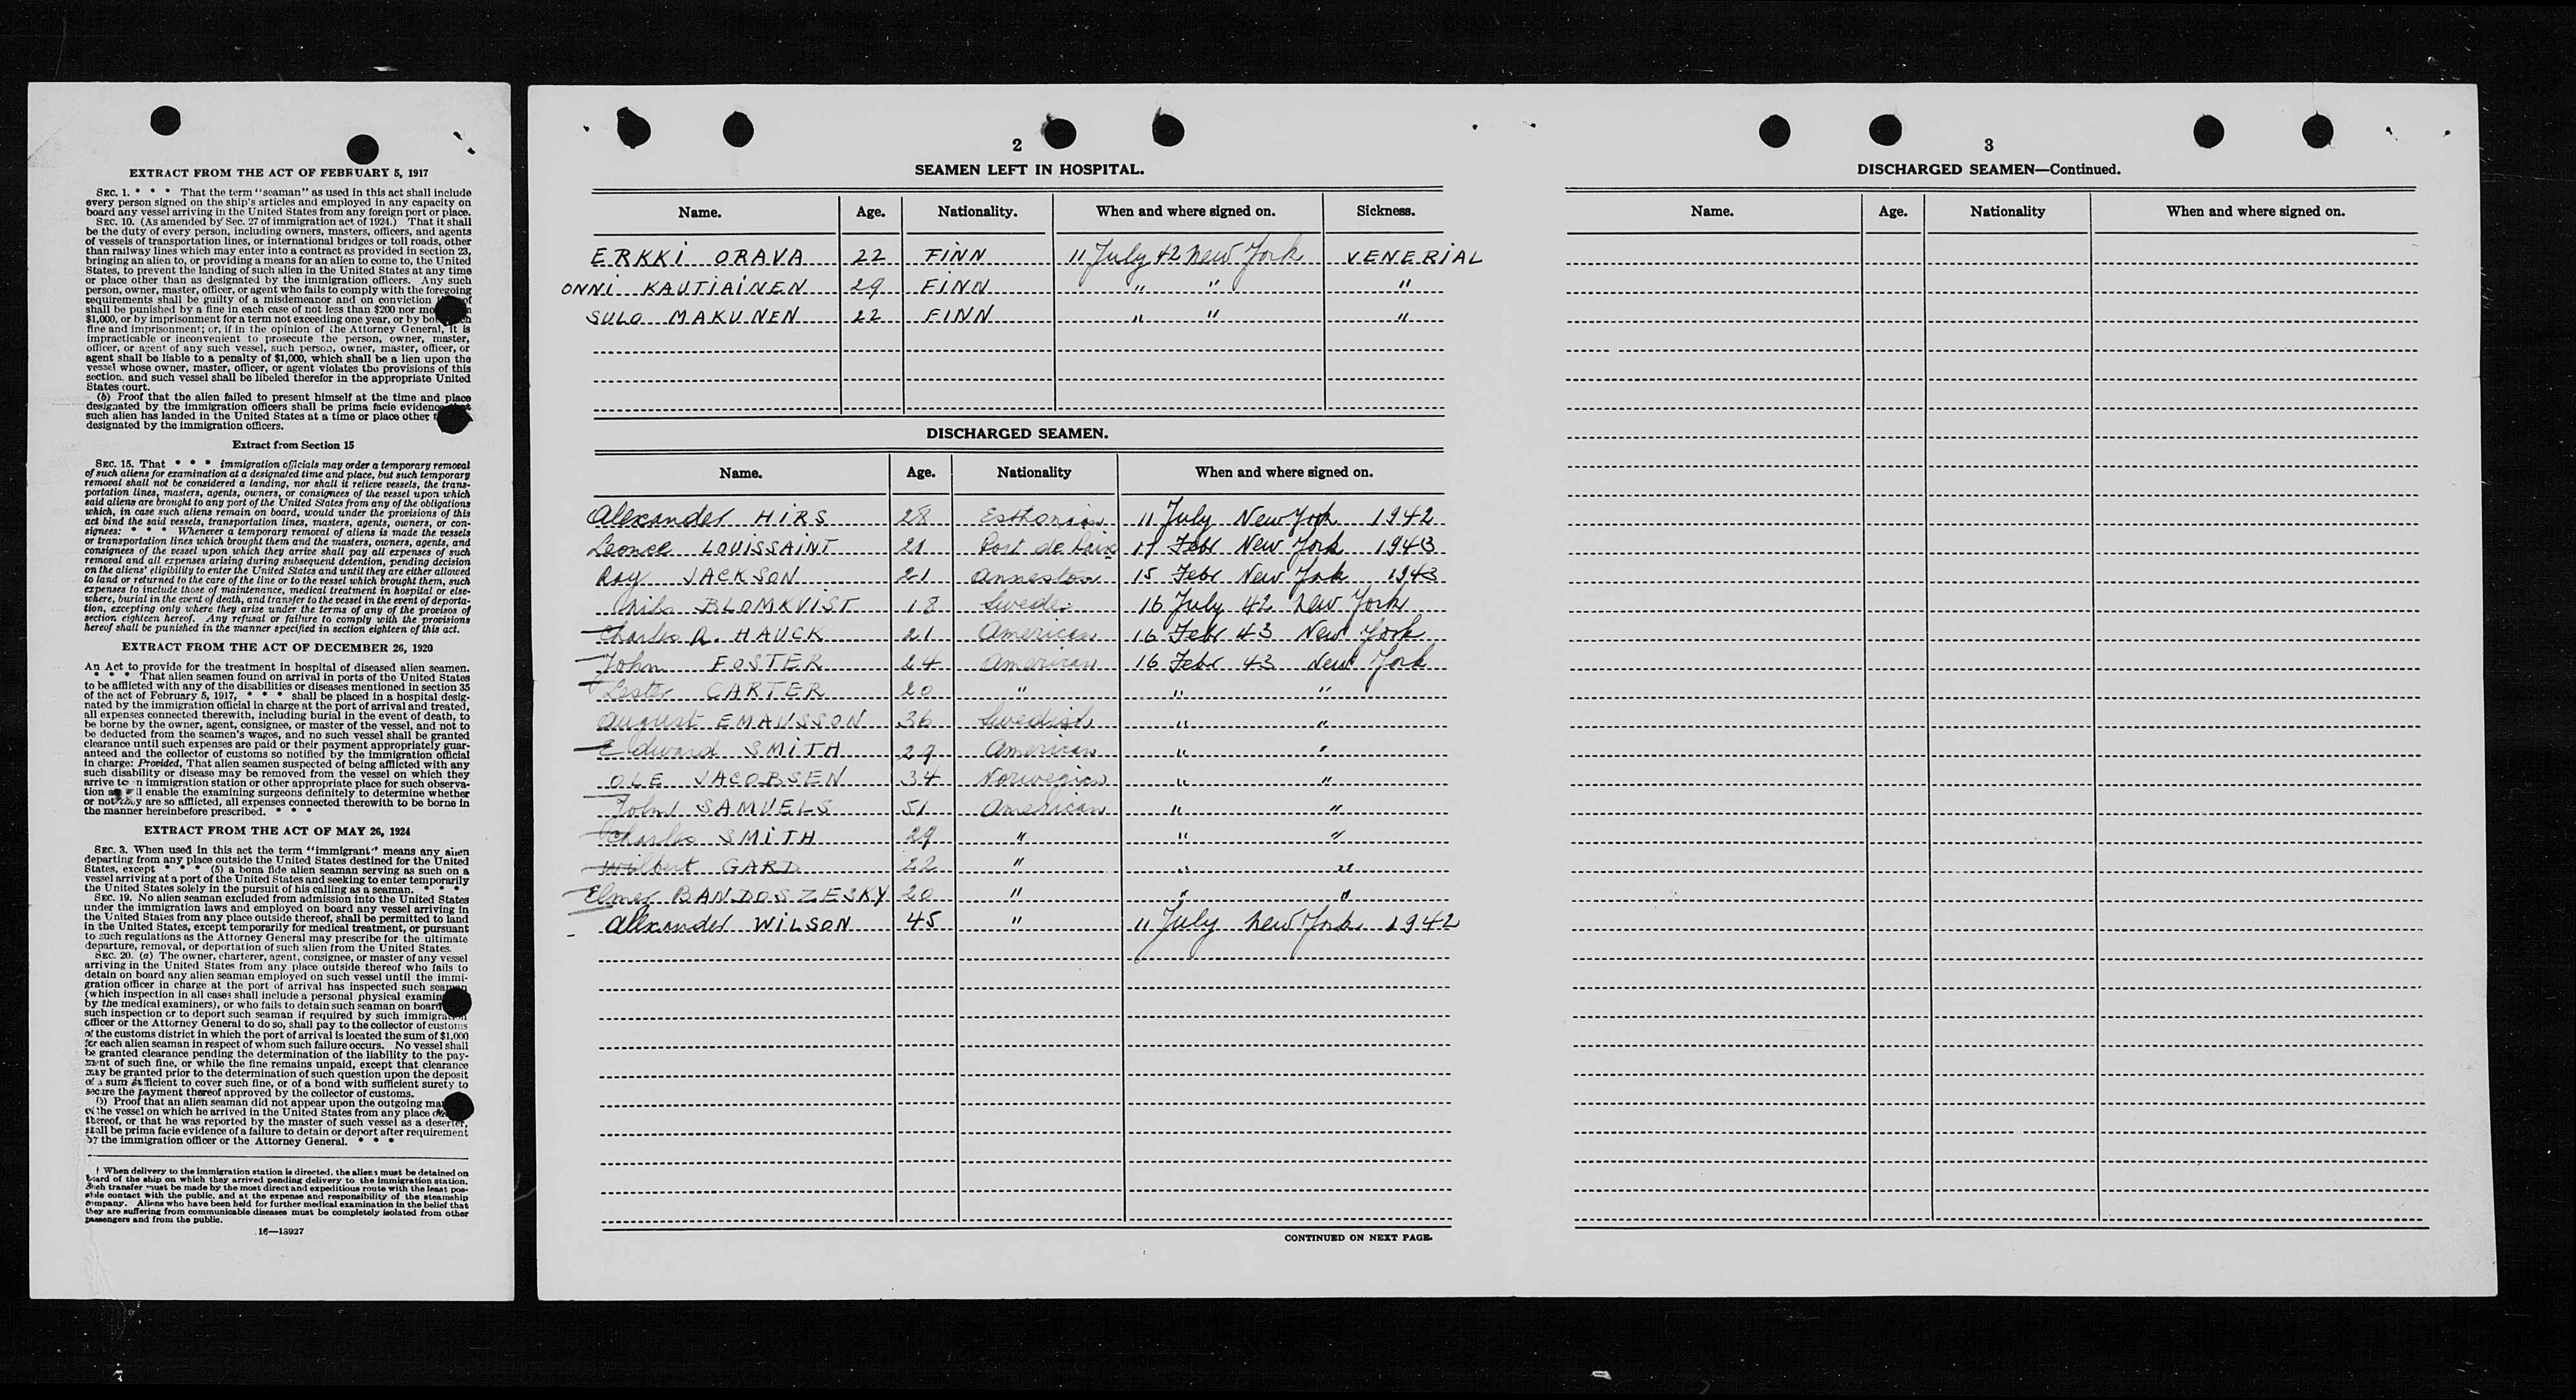 EXTRACT FROM THE ACT OF FEBRUARY 5, 1917
SEC. 1. * * * That the term "seaman" as used in this act shall include
every person signed on the ship's articles and employed in any capacity on
board any vessel arriving in the United States from any foreign port or place.
SEC. 10. (As amended by Sec. 27 of immigration act of 1924.) That it shall
be the duty of every person, including owners, masters, officers, and agents
of vessels of transportation lines, or international bridges or toll roads, other
than railway lines which may enter into a contract as provided in section 23,
bringing an alien to, or providing a means for an alien to come to, the United
States, to prevent the landing of such alien in the United States at any time
or place other than as designated by the immigration officers. Any such
person, owner, master, officer, or agent who fails to comply with the foregoing
requirements shall be guilty of a misdemeanor and on conviction
shall be punished by a fine in each case of not less than $200 nor
$1,000, or by imprisonment for a term not exceeding one year, or by
fine and imprisonment; or, if in the opinion of the Attorney General, it is
impracticable or inconvenient to prosecute the person, owner, master,
officer, or agent of any such vessel, such person, owner, master, officer, or
agent shall be liable to a penalty of $1,000, which shall be a lien upon the
vessel whose owner, master, officer, or agent violates the provisions of this
section, and such vessel shall be libeled therefor in the appropriate United
States court.
(b) Proof that the alien failed to present himself at the time and place
designated by the immigration officers shall be prima facie evidence
such alien has landed in the United States at a time or place other
designated by the immigration officers.
Extract from Section 15
SEC. 15. That * * * immigration officials may order a temporary removal
of such aliens for examination at a designated time and place, but such temporary
removal shall not be considered a landing, nor shall it relieve vessels, the trans-
portation lines, masters, agents, owners, or consignees of the vessel upon which
said aliens are brought to any port of the United States from any of the obligations
which, in case such aliens remain on board, would under the provisions of this
act bind the said vessels, transportation lines, masters, agents, owners, or con-
signees: * * * Whenever a temporary removal of aliens is made the vessels
or transportation lines which brought them and the masters, owners, agents, and
consignees of the vessel upon which they arrive shall pay all expenses of such
removal and all expenses arising during subsequent detention, pending decision
on the aliens' eligibility to enter the United States and until they are either allowed
to land or returned to the care of the line or to the vessel which brought them, such
expenses to include those of maintenance, medical treatment in hospital or else-
where, burial in the event of death, and transfer to the vessel in the event of deporta-
tion, excepting only where they arise under the terms of any of the provisos of
section eighteen hereof. Any refusal or failure to comply with the provisions
hereof shall be punished in the manner specified in section eighteen of this act.
EXTRACT FROM THE ACT OF DECEMBER 26, 1920
An Act to provide for the treatment in hospital of diseased alien seamen.
* * * That alien seamen found on arrival in ports of the United States
to be afflicted with any of the disabilities or diseases mentioned in section 35
of the act of February 5, 1917, * * * shall be placed in a hospital desig-
nated by the immigration official in charge at the port of arrival and treated,
all expenses connected therewith, including burial in the event of death, to
be borne by the owner, agent, consignee, or master of the vessel, and not to
be deducted from the seamen's wages, and no such vessel shall be granted
clearance until such expenses are paid or their payment appropriately guar-
anteed and the collector of customs so notified by the immigration official
in charge: Provided, That alien seamen suspected of being afflicted with any
such disability or disease may be removed from the vessel on which they
arrive to n immigration station or other appropriate place for such observa-
tion enable the examining surgeons definitely to determine whether
or not they are so afflicted, all expenses connected therewith to be borne in
the manner hereinbefore prescribed. * * *
EXTRACT FROM THE ACT OF MAY 26, 1924
SEC. 3. When used in this act the term "immigrant" means any alien
departing from any place outside the United States destined for the United
States, except * * * (5) a bona fide alien seaman serving as such on a
vessel arriving at a port of the United States and seeking to enter temporarily
the United States solely in the pursuit of his calling as a seaman. * * *
SEC. 19. No alien seaman excluded from admission into the United States
under the immigration laws and employed on board any vessel arriving in
the United States from any place outside thereof, shall be permitted to land
in the United States, except temporarily for medical treatment, or pursuant
to such regulations as the Attorney General may prescribe for the ultimate
departure, removal, or deportation of such alien from the United States.
SEC. 20. (a) The owner, charterer, agent, consignee, or master of any vessel
arriving in the United States from any place outside thereof who fails to
detain on board any alien seaman employed on such vessel until the immi-
gration officer in charge at the port of arrival has inspected such seaman
(which inspection in all cases shall include a personal physical
by the medical examiners), or who fails to detain such seaman on board
such inspection or to deport such seaman if required by such immigration
officer or the Attorney General to do so, shall pay to the collector of customs
of the customs district in which the port of arrival is located the sum of $1,000
for each alien seaman in respect of whom such failure occurs. No vessel shall
be granted clearance pending the determination of the liability to the pay-
ment of such fine, or while the fine remains unpaid, except that clearance
may be granted prior to the determination of such question upon the deposit
of a sum sufficient to cover such fine, or of a bond with sufficient surety to
secure the payment thereof approved by the collector of customs.
(b) Proof that an alien seaman did not appear upon the outgoing
of the vessel on which he arrived in the United States from any place
thereof, or that he was reported by the master of such vessel as a deserter,
shall be prima facie evidence of a failure to detain or deport after requirement
by the immigration officer or the Attorney General. * * *
† When delivery to the immigration station is directed, the aliens must be detained on
board of the ship on which they arrived pending delivery to the immigration station.
Such transfer must be made by the most direct and expeditious route with the least pos-
sible contact with the public, and at the expense and responsibility of the steamship
company. Aliens who have been held for further medical examination in the belief that
they are suffering from communicable diseases must be completely isolated from other
passengers and from the public.
16—13927
2
SEAMEN LEFT IN HOSPITAL.
Name. Age. Nationality. When and where signed on. Sickness.
ERKKI ORAVA 22 FINN 11 July 42 New York VENERIAL
ONNI KAUTIAINEN 29 FINN " " "
SULO MAKUNEN 22 FINN " " "
DISCHARGED SEAMEN.
Name. Age. Nationality When and where signed on.
Alexander HIRS 28 Esthonian 11 July New York 1942
Leonce LOUISSAINT 21 Port de Paix 17 Febr New York 1943
Roy JACKSON 21 Anneston 15 Febr New York 1943
BLOMKVIST 18 Sweden 16 July 42 New York
Charles A. HAUCK 21 American 16 Febr 43 New York
John FOSTER 24 American 16 Febr 43 New York
Lester CARTER 20 " " "
August EMAUSSON 36 Swedish " "
Edward SMITH 29 American " "
OLE JACOBSEN 34 Norwegian " "
John SAMUELS 51 American " "
Charles SMITH 29 " " "
Wilbert GARD 22 " " "
Elmer BANDOSZESKY 20 " " "
Alexander WILSON 45 " 11 July New York 1942
CONTINUED ON NEXT PAGE.
3
DISCHARGED SEAMEN—Continued.
Name. Age. Nationality When and where signed on.